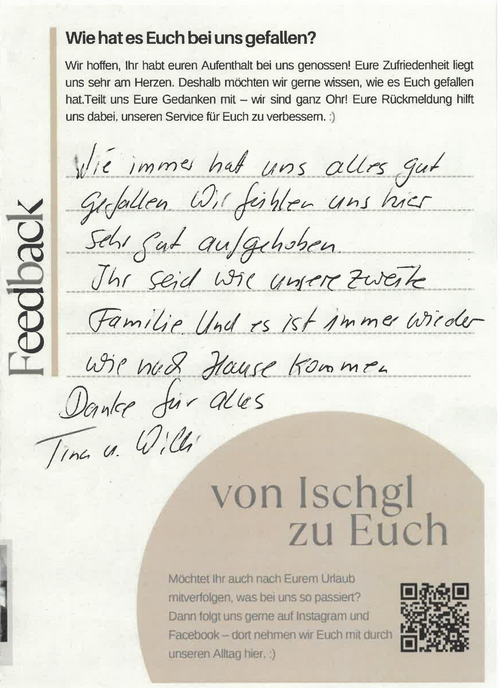 Wie hat es Euch bei uns gefallen?
Wir hoffen, Ihr habt euren Aufenthalt bei uns genossen! Eure Zufriedenheit liegt
uns sehr am Herzen. Deshalb möchten wir gerne wissen, wie es Euch gefallen
hat.Teilt uns Eure Gedanken mit – wir sind ganz Ohr! Eure Rückmeldung hilft
uns dabei, unseren Service für Euch zu verbessern. :)
Feedback
Wie immer hat uns alles gut
gefallen. Wir fühlen uns hier
sehr gut aufgehoben.
Ihr seid wie unsere zweite
Familie. Und es ist immer wieder
wie nach Hause kommen
Danke für alles
Tina u. Willi
von Ischgl
zu Euch
Möchtet Ihr auch nach Eurem Urlaub
mitverfolgen, was bei uns so passiert?
Dann folgt uns gerne auf Instagram und
Facebook – dort nehmen wir Euch mit durch
unseren Alltag hier. :)